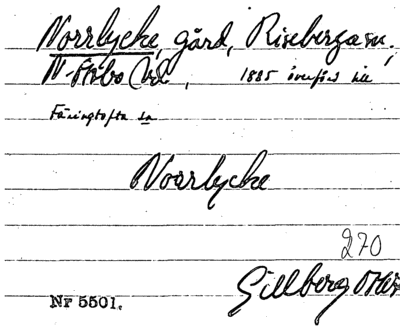 Norrlycke, gård, Riseberga sn,
N-Åsbo hd, 1885 överförd till
Färingtofta sn
Noorlycke
270
Gillberg
Nr 5501.